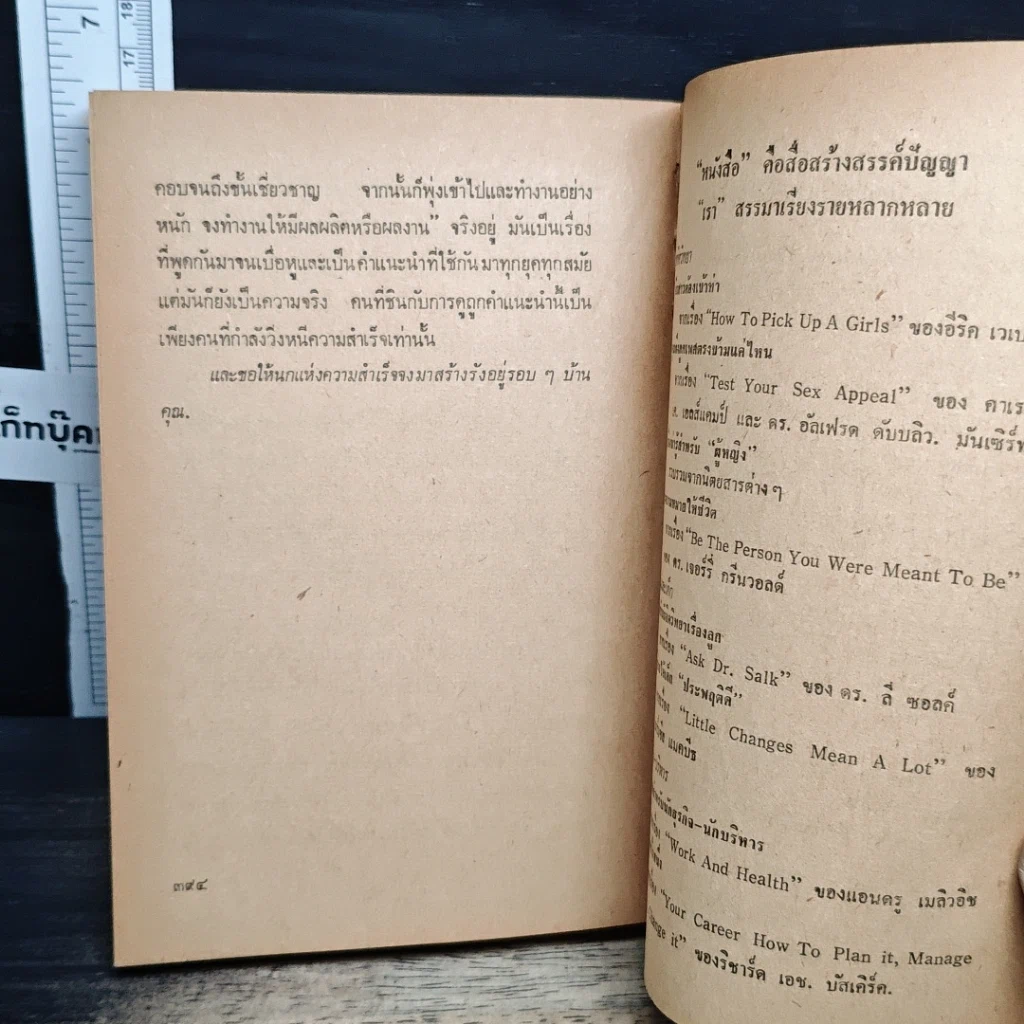 7
18
17
ก็ทบุ๊ค
คอบจนถึงขั้นเชี่ยวชาญ จากนั้นก็พุ่งเข้าไปและทำงานอย่าง
หนัก จงทำงานให้มีผลผลิตหรือผลงาน” จริงอยู่ มันเป็นเรื่อง
ที่พูดกันมาจนเบื่อหูและเป็นคำแนะนำที่ใช้กันมาทุกยุคทุกสมัย
แต่มันก็ยังเป็นความจริง คนที่ชินกับการดูถูกคำแนะนำนี้เป็น
เพียงคนที่กำลังวิ่งหนีความสำเร็จเท่านั้น
และขอให้นกแห่งความสำเร็จจงมาสร้างรังอยู่รอบ ๆ บ้าน
คุณ.
๓๙๔
“หนังสือ” คือสื่อสร้างสรรค์ปัญญา
“เรา” สรรมาเรียงรายหลากหลาย
จากเรื่อง “How To Pick Up A Girls” ของอีริค
เพศตรงข้ามแค่ไหน
จากเรื่อง “Test Your Sex Appeal” ของ
เอลส์แคมป์ และ ดร. อัลเฟรด ดับบลิว.
สำหรับ “ผู้หญิง”
รวบรวมจากนิตยสารต่าง ๆ
ความหมายให้ชีวิต
“Be The Person You Were Meant To Be”
ดร. เจอร์รี่ กรีนวอลด์
เรื่องลูก
“Ask Dr. Salk” ของ ดร. ลี ซอลค์
“ประพฤติดี”
“Little Changes Mean A Lot” ของ
แมคบีธ
นักธุรกิจ-นักบริหาร
“Work And Health” ของแอนดรู เมลิวอิช
“Your Career How To Plan it, Manage
it” ของริชาร์ด เอช. บัสเคิร์ค.